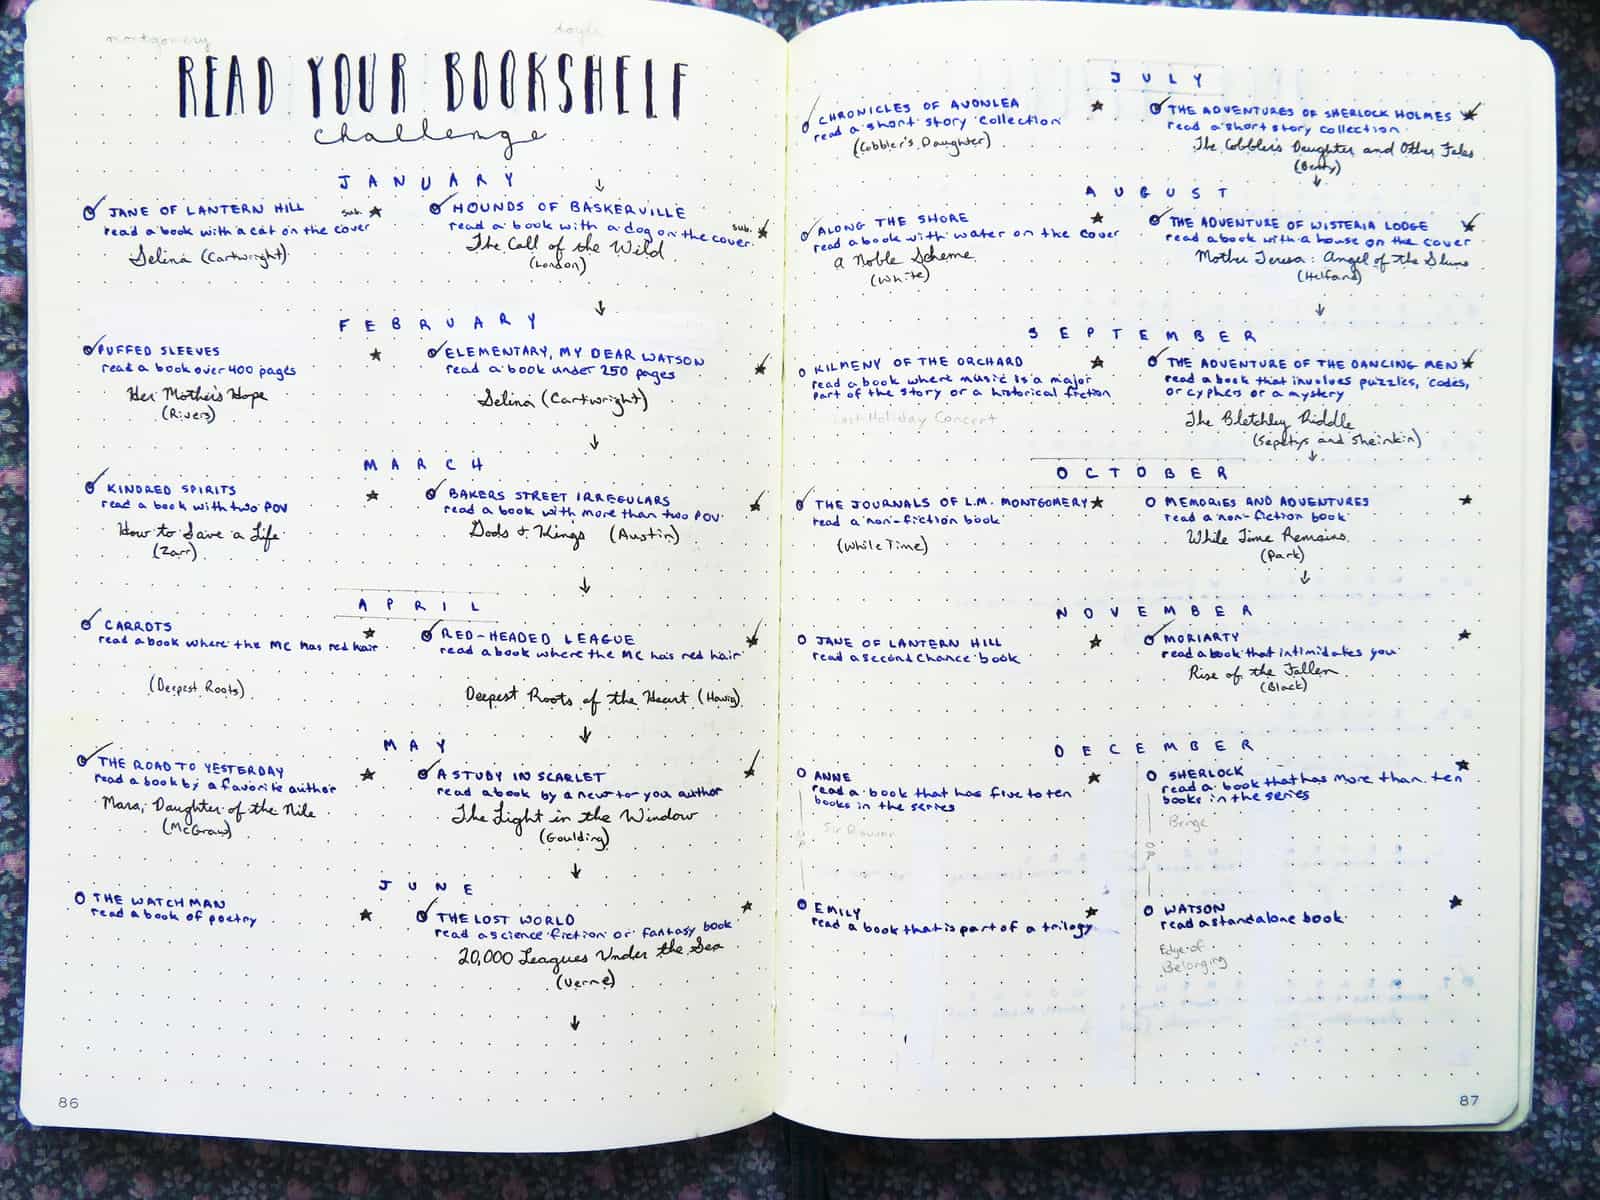 montgomery
doyle
READ YOUR BOOKSHELF
challenge
JANUARY
JANE OF LANTERN HILL
sub.
read a book with a cat on the cover
Selina (Cartwright)
HOUNDS OF BASKERVILLE
sub.
read a book with a dog on the cover
The Call of the Wild
(London)
FEBRUARY
PUFFED SLEEVES
read a book over 400 pages
Her Mother's Hope
(Rivers)
ELEMENTARY, MY DEAR WATSON
read a book under 250 pages
Selina (Cartwright)
MARCH
KINDRED SPIRITS
read a book with two POV
How to Save a Life
(Zarr)
BAKERS STREET IRREGULARS
read a book with more than two POV
Gods & Kings (Austin)
APRIL
CARROTS
read a book where the MC has red hair
(Deepest Roots)
RED-HEADED LEAGUE
read a book where the MC has red hair
Deepest Roots of the Heart (Havig)
MAY
THE ROAD TO YESTERDAY
read a book by a favorite author
Mara, Daughter of the Nile
(McGraw)
A STUDY IN SCARLET
read a book by a new to you author
The Light in the Window
(Goulding)
JUNE
THE WATCHMAN
read a book of poetry
THE LOST WORLD
read a science fiction or fantasy book
20,000 Leagues Under the Sea
(Verne)
86
JULY
CHRONICLES OF AVONLEA
read a short story collection
(Cobbler's Daughter)
THE ADVENTURES OF SHERLOCK HOLMES
read a short story collection
The Cobblers Daughter and Other Tales
(Beaty)
AUGUST
ALONG THE SHORE
read a book with water on the cover
A Noble Scheme
(White)
THE ADVENTURE OF WISTERIA LODGE
read a book with a house on the cover
Mother Teresa: Angel of the Slums
(Helfand)
SEPTEMBER
KILMENY OF THE ORCHARD
read a book where music is a major
part of the story or a historical fiction
Last Holiday Concert
THE ADVENTURE OF THE DANCING MEN
read a book that involves puzzles, codes,
or cyphers or a mystery
The Bletchley Riddle
(Sepetys and Sheinkin)
OCTOBER
THE JOURNALS OF L.M. MONTGOMERY
read a non-fiction book
(While Time)
MEMORIES AND ADVENTURES
read a non-fiction book
While Time Remains
(Park)
NOVEMBER
JANE OF LANTERN HILL
read a second chance book
MORIARTY
read a book that intimidates you
Rise of the Fallen
(Black)
DECEMBER
ANNE
read a book that has five to ten
books in the series
OR
EMILY
read a book that is part of a trilogy
SHERLOCK
read a book that has more than ten
books in the series
Bringe
OR
WATSON
read a standalone book
Edge of
Belonging
87